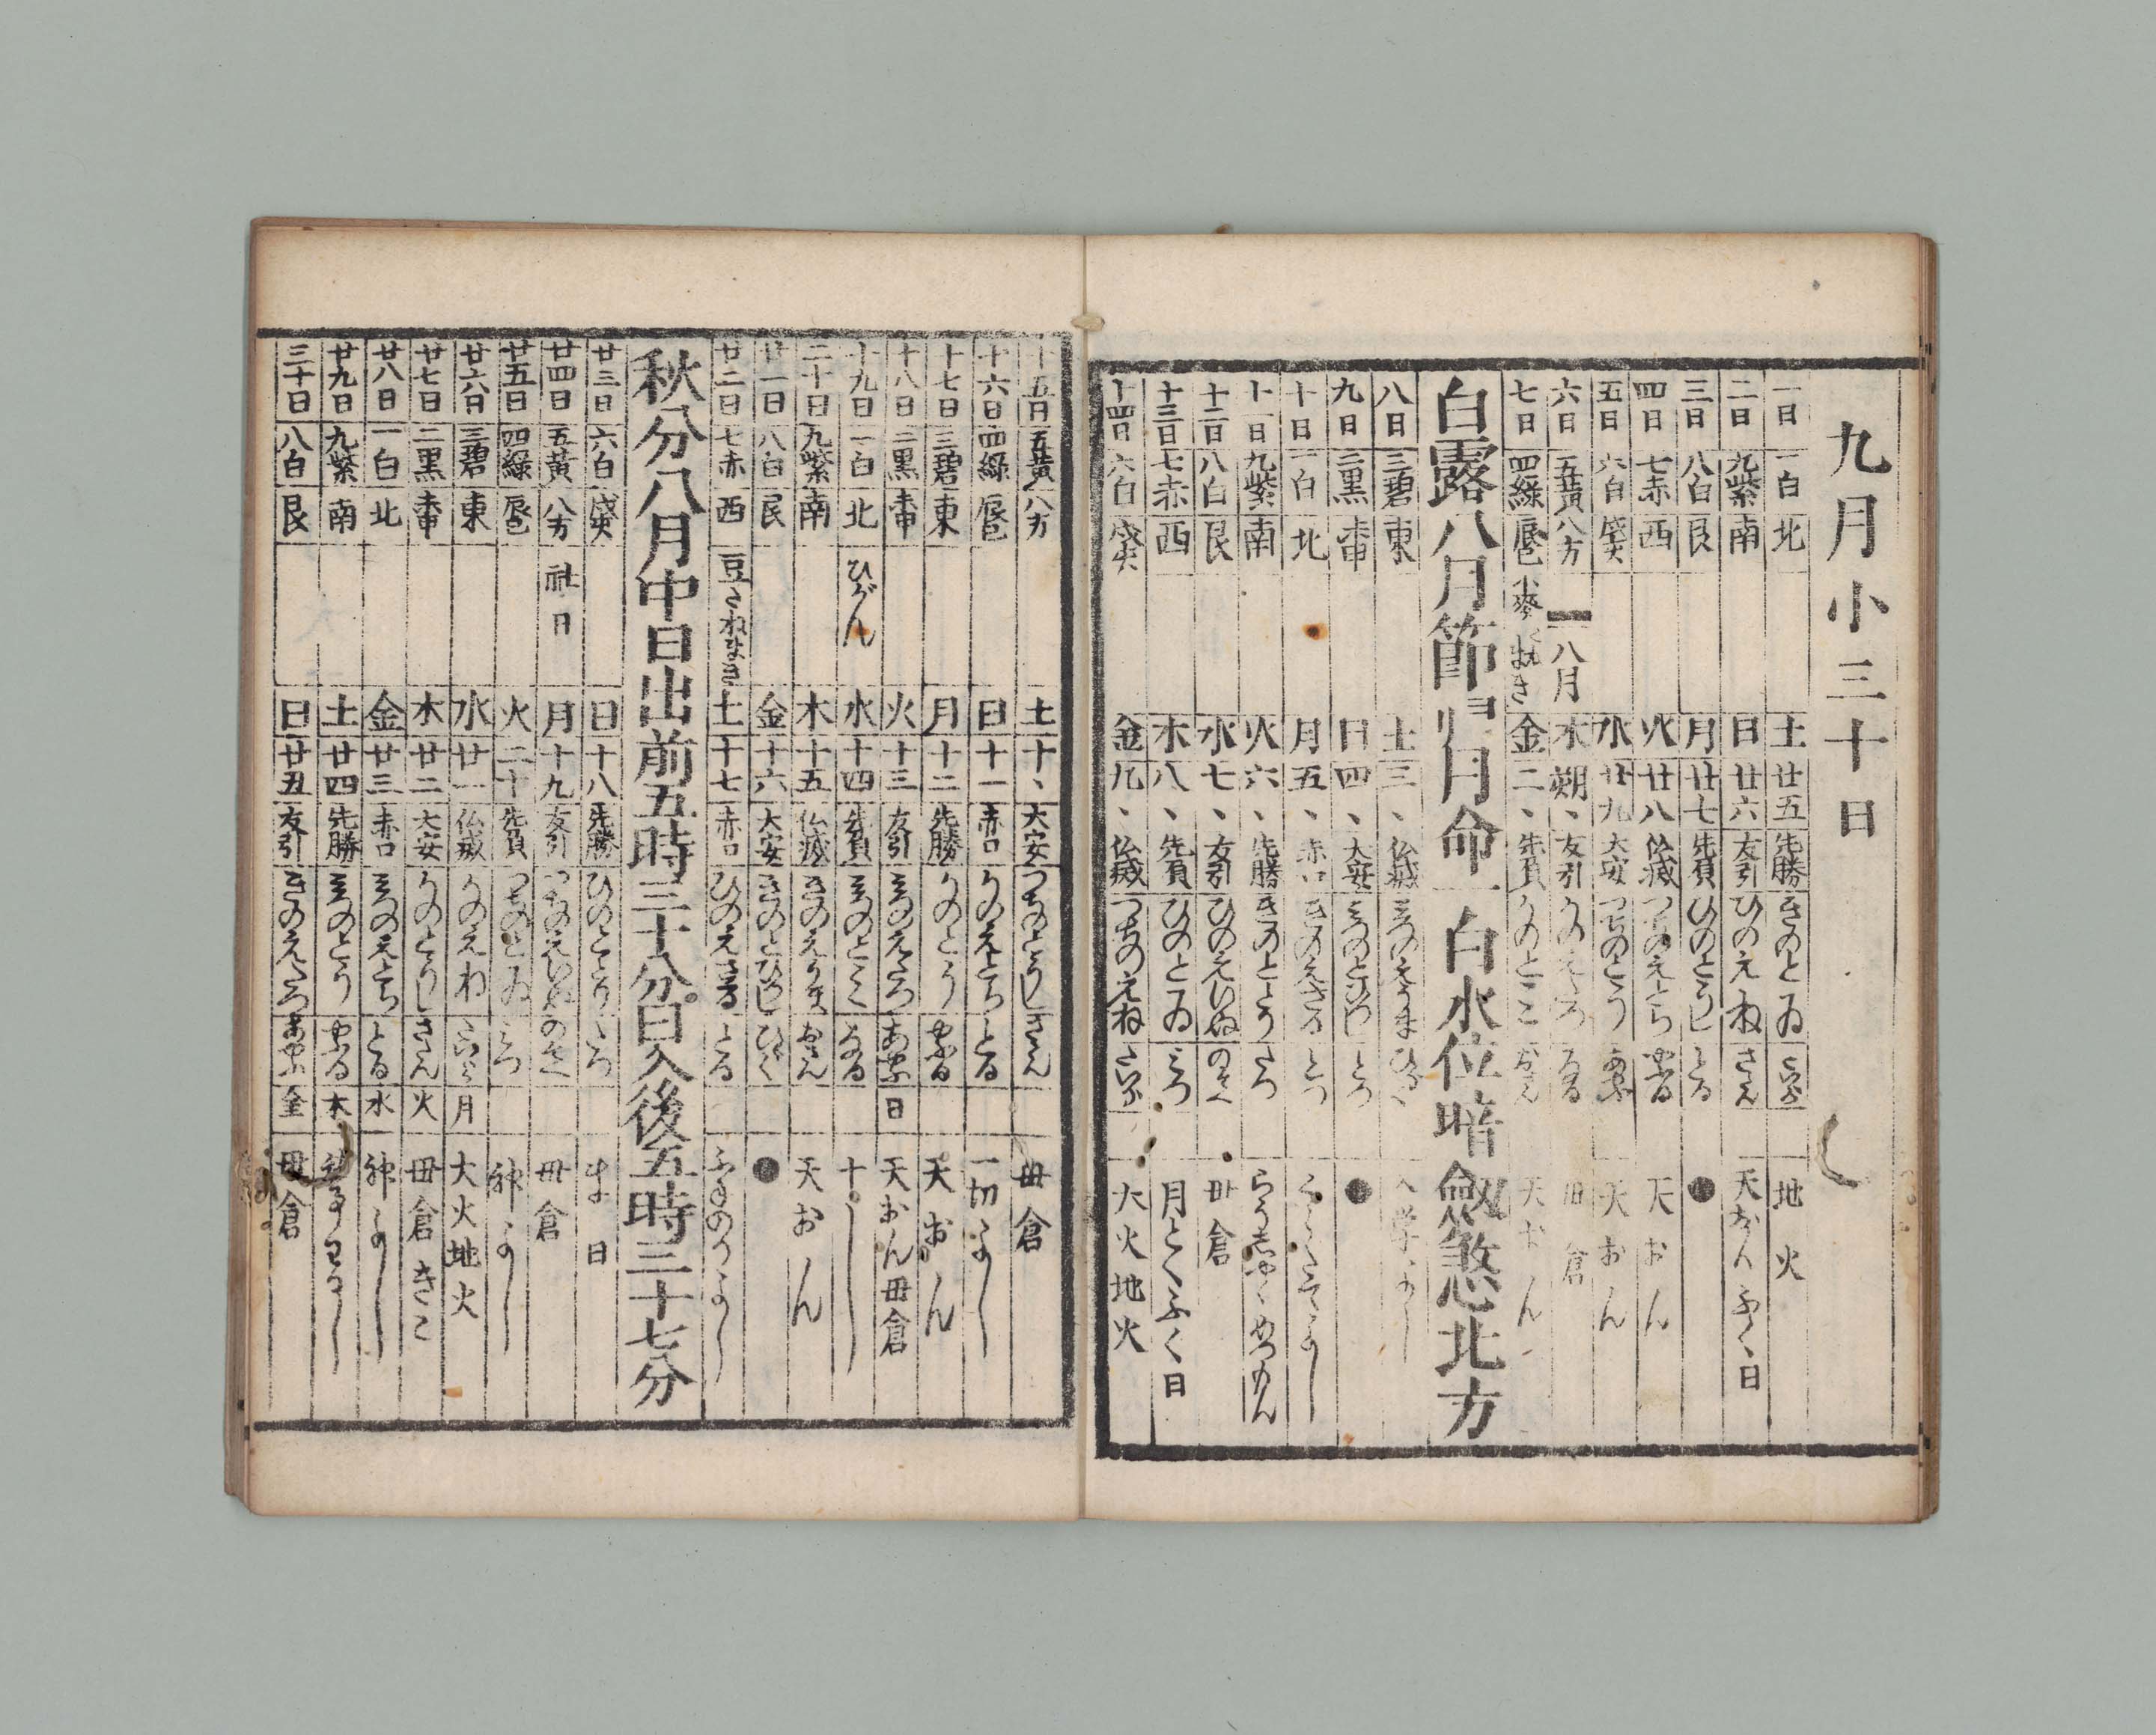 九月小三十日
一日 一白 北 土 廿五 先勝 きのとゐ たいら 地火
二日 九紫 南 日 廿六 友引 ひのえね さだん 天おんふく日
三日 八白 艮 月 廿七 先負 ひのとうし とる ●
四日 七赤 西 火 廿八 仏滅 つちのえとら やぶる 天おん
五日 六白 戌亥 水 廿九 大安 つちのとう あやふ 天おん
六日 五黄 八方 一八月 木 朔、 友引 かのえたつ なる 毋倉
七日 四緑 辰巳 小麥 まき 金 二、 先負 かのとミ おさん 天おん
白露八月節 月命一白水位暗劔煞北方
八日 三碧 東 土 三、 仏滅 ミつのえうま ひらく
九日 二黒 未申 日 四、 大安 ミつのとひつじ とつ ●
十日 一白 北 月 五、 赤口 きのえさる とつ
十一日 九紫 南 火 六、 先勝 きのととり たつ
十二日 八白 艮 水 七、 友引 ひのえいぬ のぞく 毋倉
十三日 七赤 西 木 八、 先負 ひのとゐ ミつ 月とくふく日
十四日 六白 戌亥 金 九、 仏滅 つちのえね たいら 大火地火
十五日 五黄 八方 土 十、 大安 つちのとうし さだん 毋倉
十六日 四緑 辰巳 日 十一 赤口 かのえとら とる 一切よし
十七日 三碧 東 月 十二 先勝 かのとう やぶる 天おん
十八日 二黒 未申 火 十三 友引 ミつのえたつ あやふ 日 天おん毋倉
十九日 一白 北 ひがん 水 十四 先負 ミつのとミ なる 十し
二十日 九紫 南 木 十五 仏滅 きのえうま おさん 天おん
廿一日 八白 艮 金 十六 大安 きのとひつじ ひらく ●
廿二日 七赤 西 豆さねまき 土 十七 赤口 ひのえさる とる
秋分八月中日出前五時三十八分。日入後五時三十七分
廿三日 六白 戌亥 日 十八 先勝 ひのととり たつ 日
廿四日 五黄 八方 社日 月 十九 友引 つちのえいぬ のぞく 毋倉
廿五日 四緑 辰巳 火 二十 先負 つちのとゐ ミつ 神よし
廿六日 三碧 東 水 廿一 仏滅 かのえね たいら 月 大火地火
廿七日 二黒 未申 木 廿二 大安 かのとうし さだん 火 毋倉きこ
廿八日 一白 北 金 廿三 赤口 ミつのえとら とる 水 神よし
廿九日 九紫 南 土 廿四 先勝 ミつのとう やぶる 木
三十日 八白 艮 日 廿五 友引 きのえたつ あやふ 金 毋倉